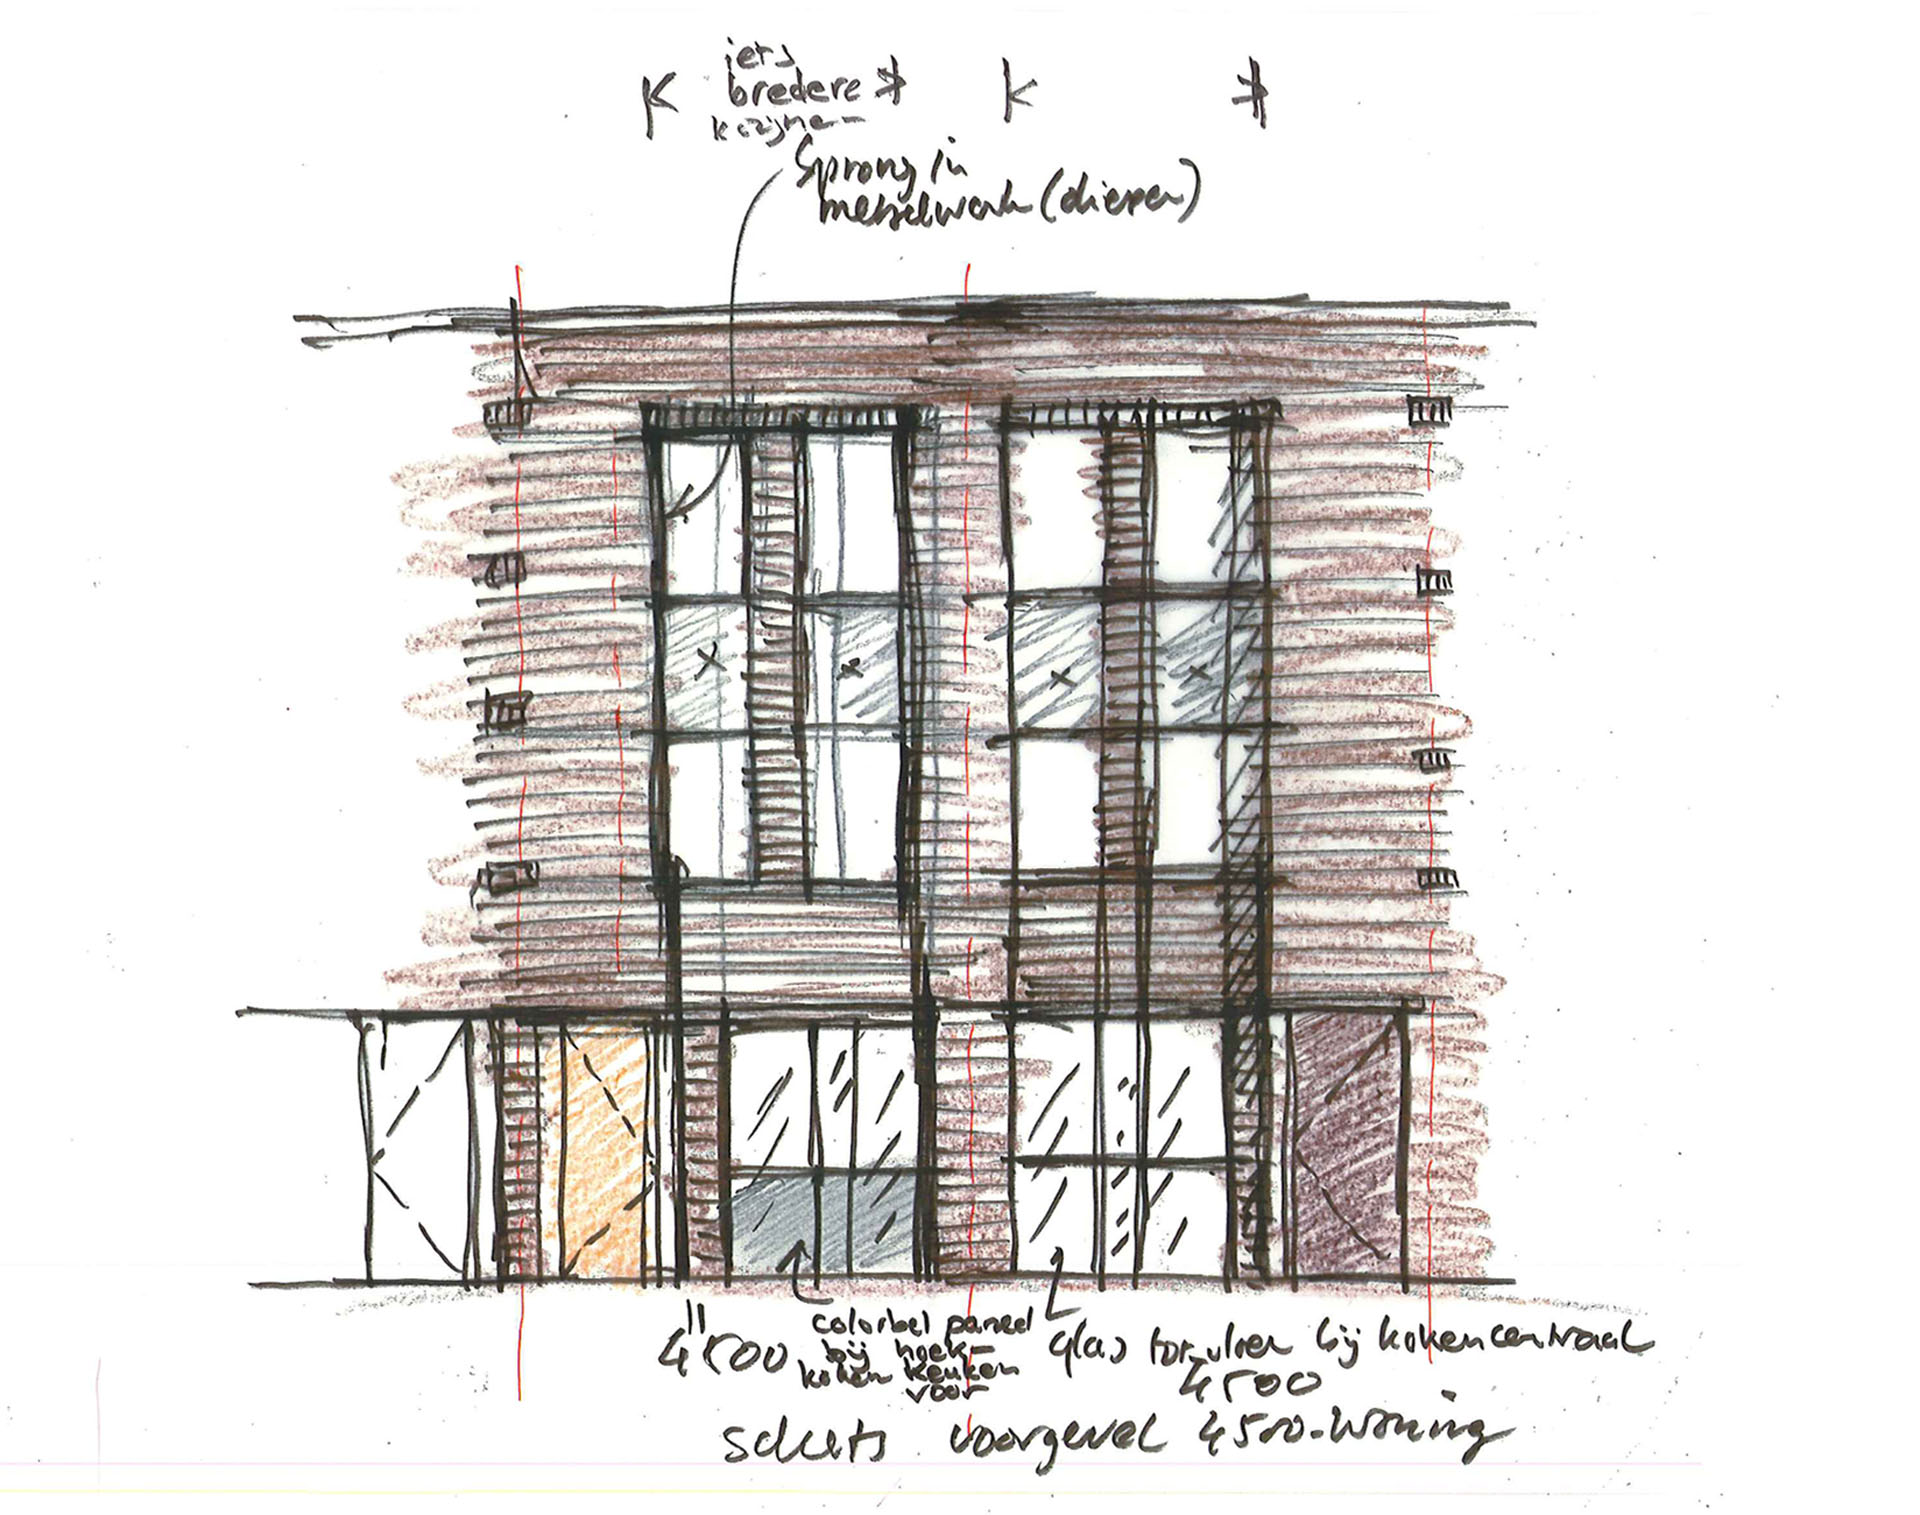 iets
bredere
kozijnen
Sprong in
metselwerk (dieper)
4500
colorbel paneel
bij hoek-
keuken
voor
glas tot vloer bij koken centraal
4500
schets voorgevel 4500-woning